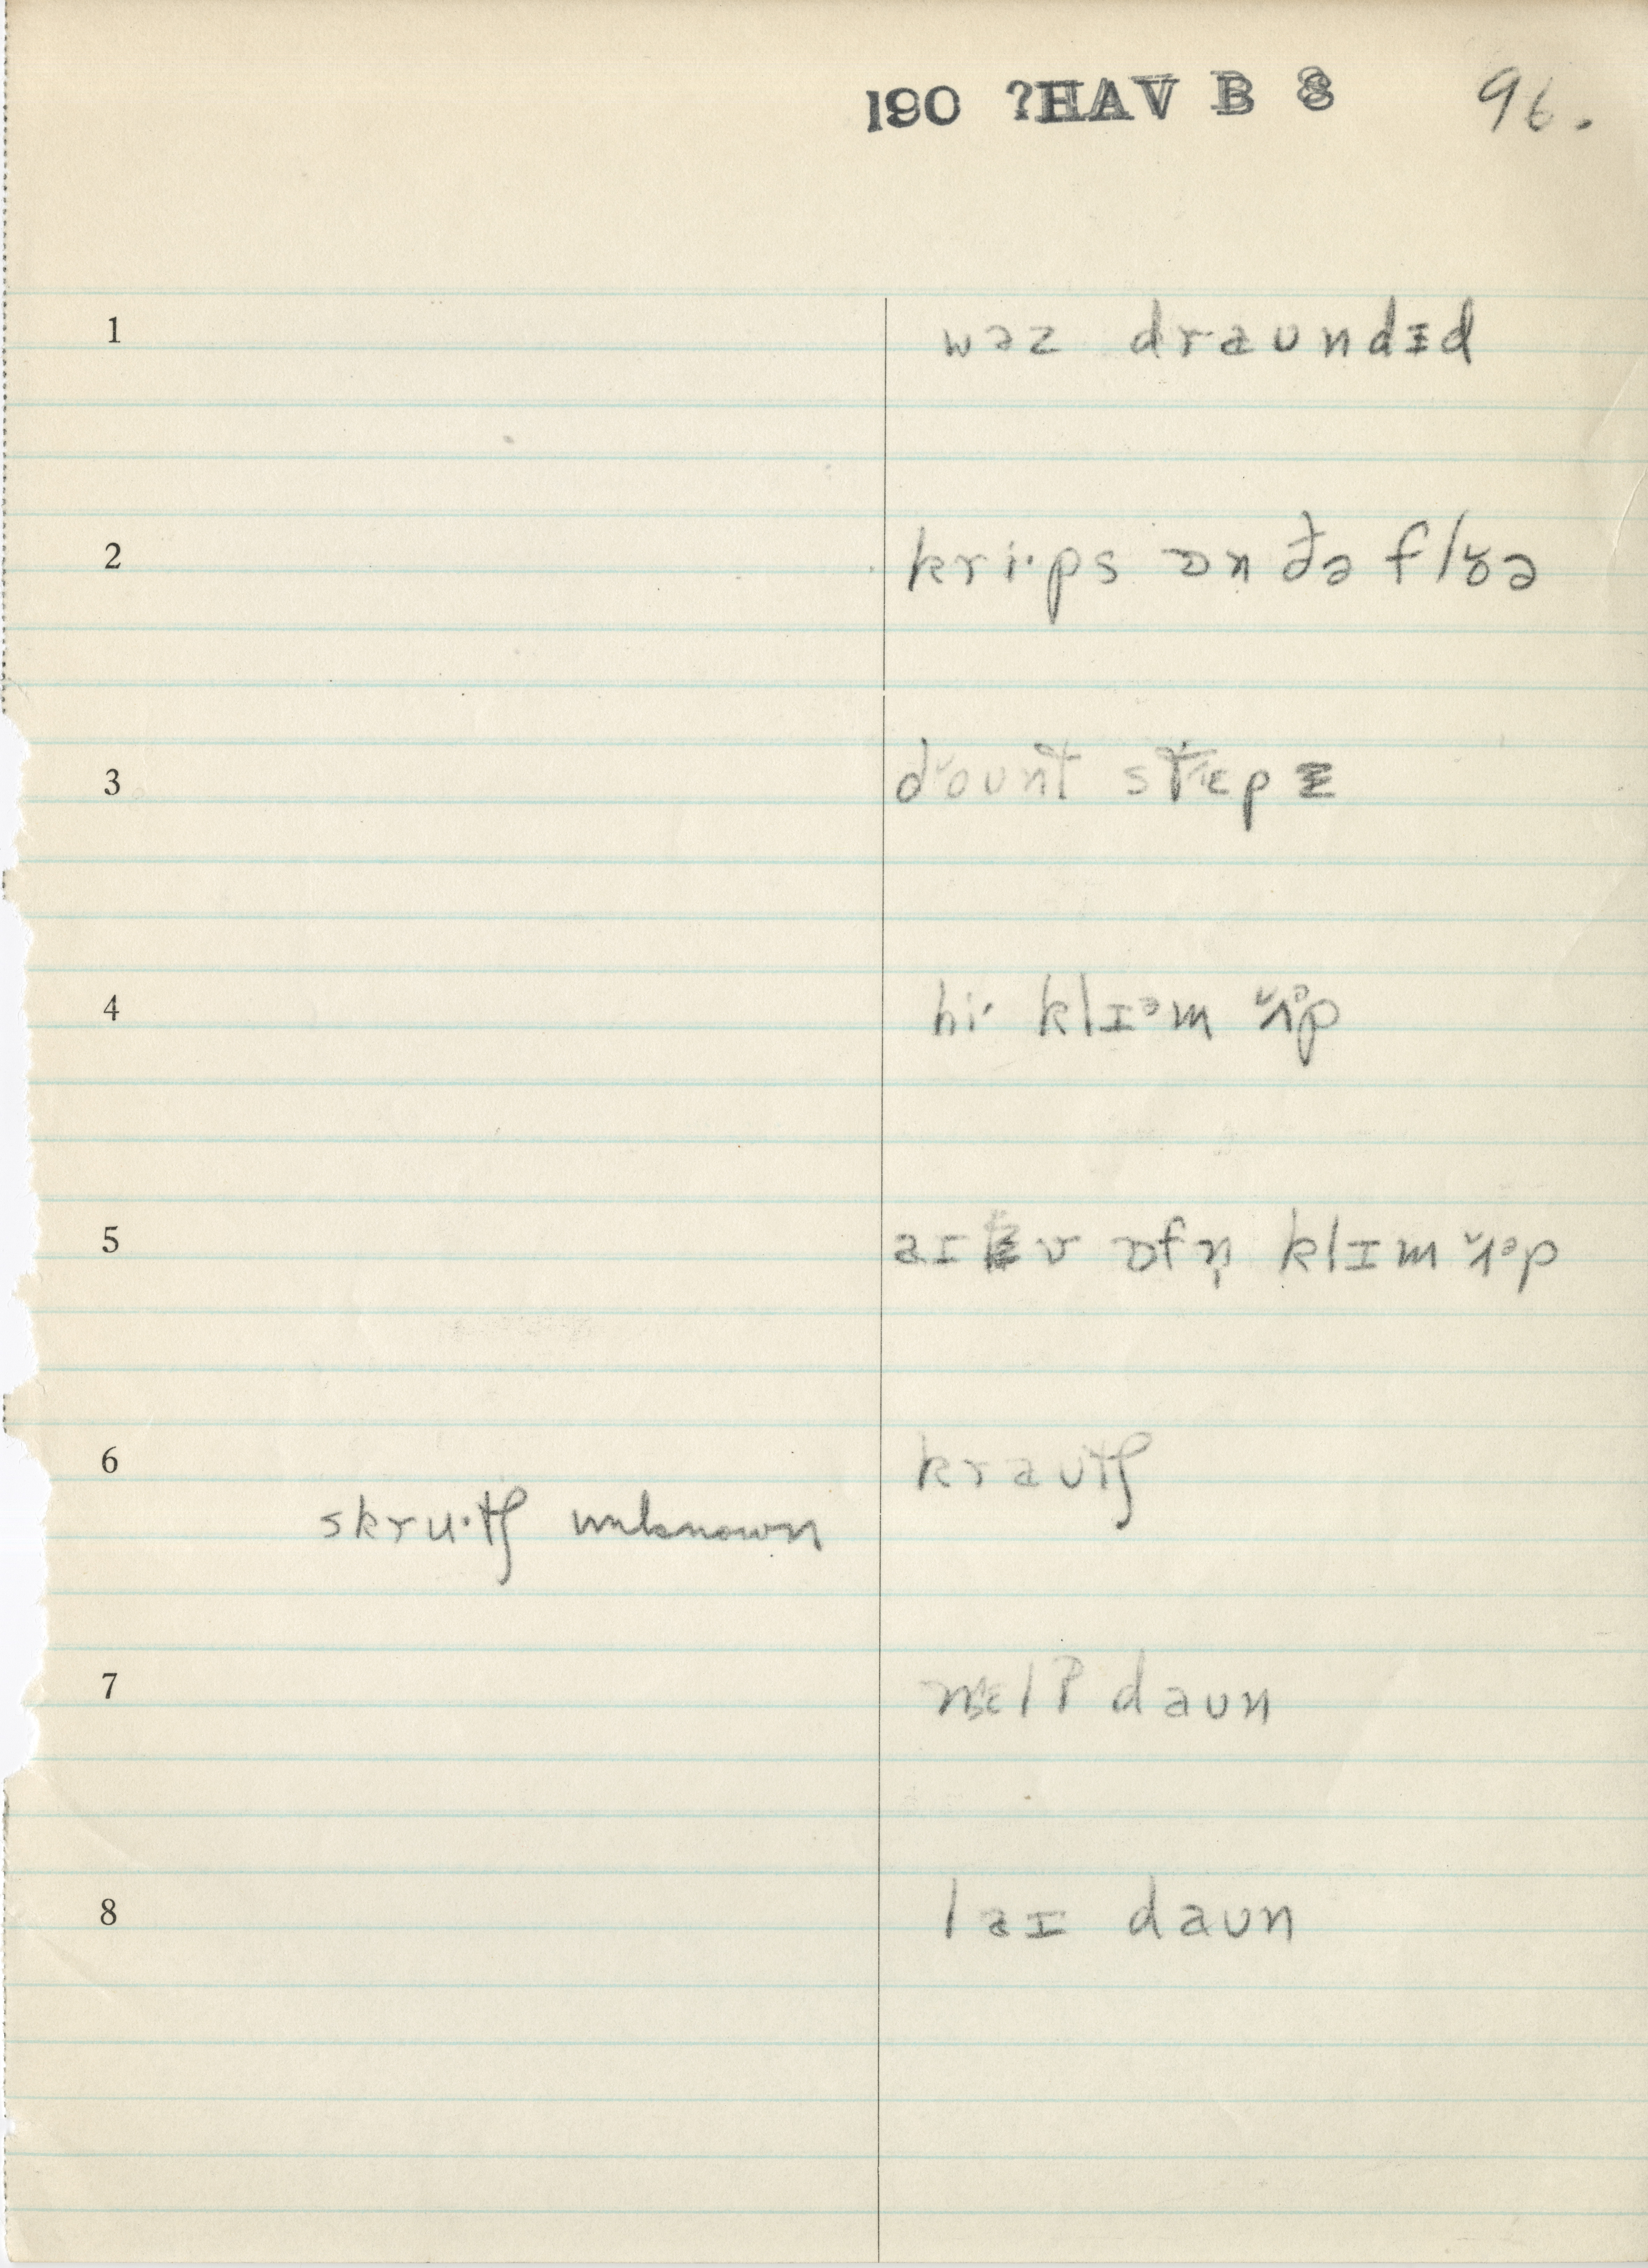 190 ?HAV B 8 96.
1 wəz draundɪd
2 kri·ps ɒn ðə flɔə
3 dount stɛp
4 hi· klɪᵊm ʌᵊp
5 aɪ v ɒfn̩ klɪm ʌᵊp
6 krautʃ
skru·tʃ unknown
7 nɛlʔ daun
8 laɪ daun